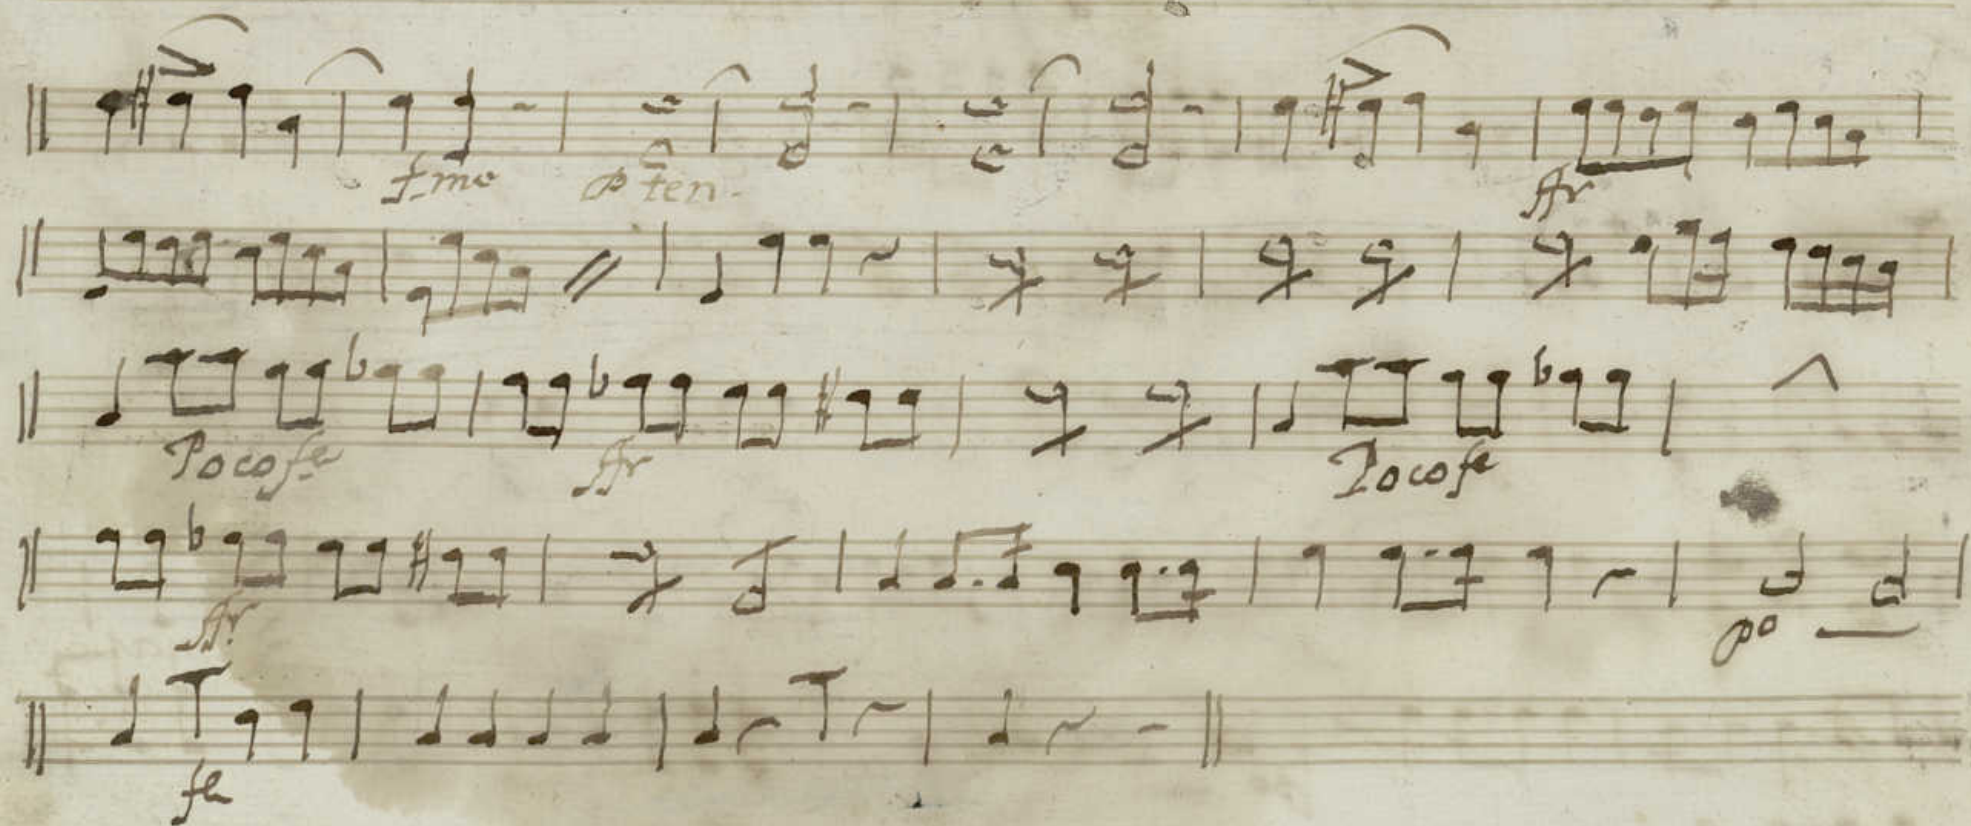 f.mo P ten. ffr
Poco fe ffr Poco fe
ffr po
fe